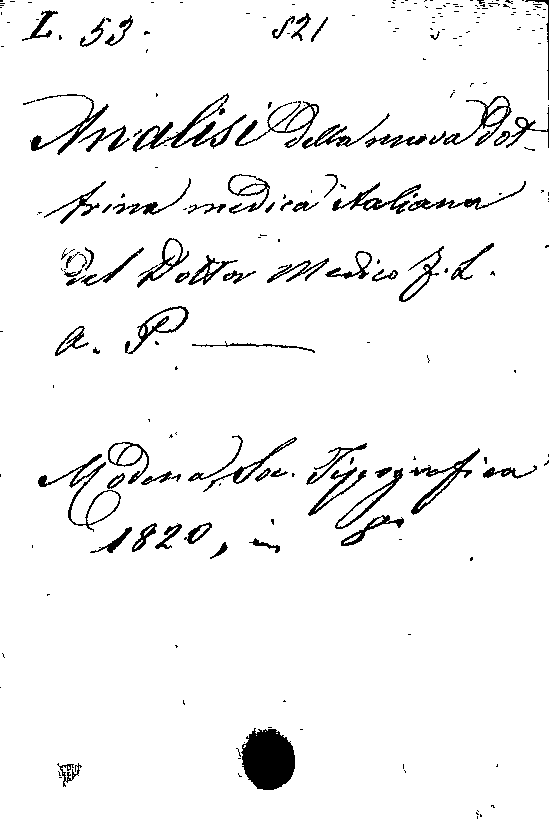 L. 53. 521
Analisi della nuova Dot-
trina medica italiana
del Dottor Medico F. L.
A. P.
Modena, Soc. Tipografica
1820, in 8º